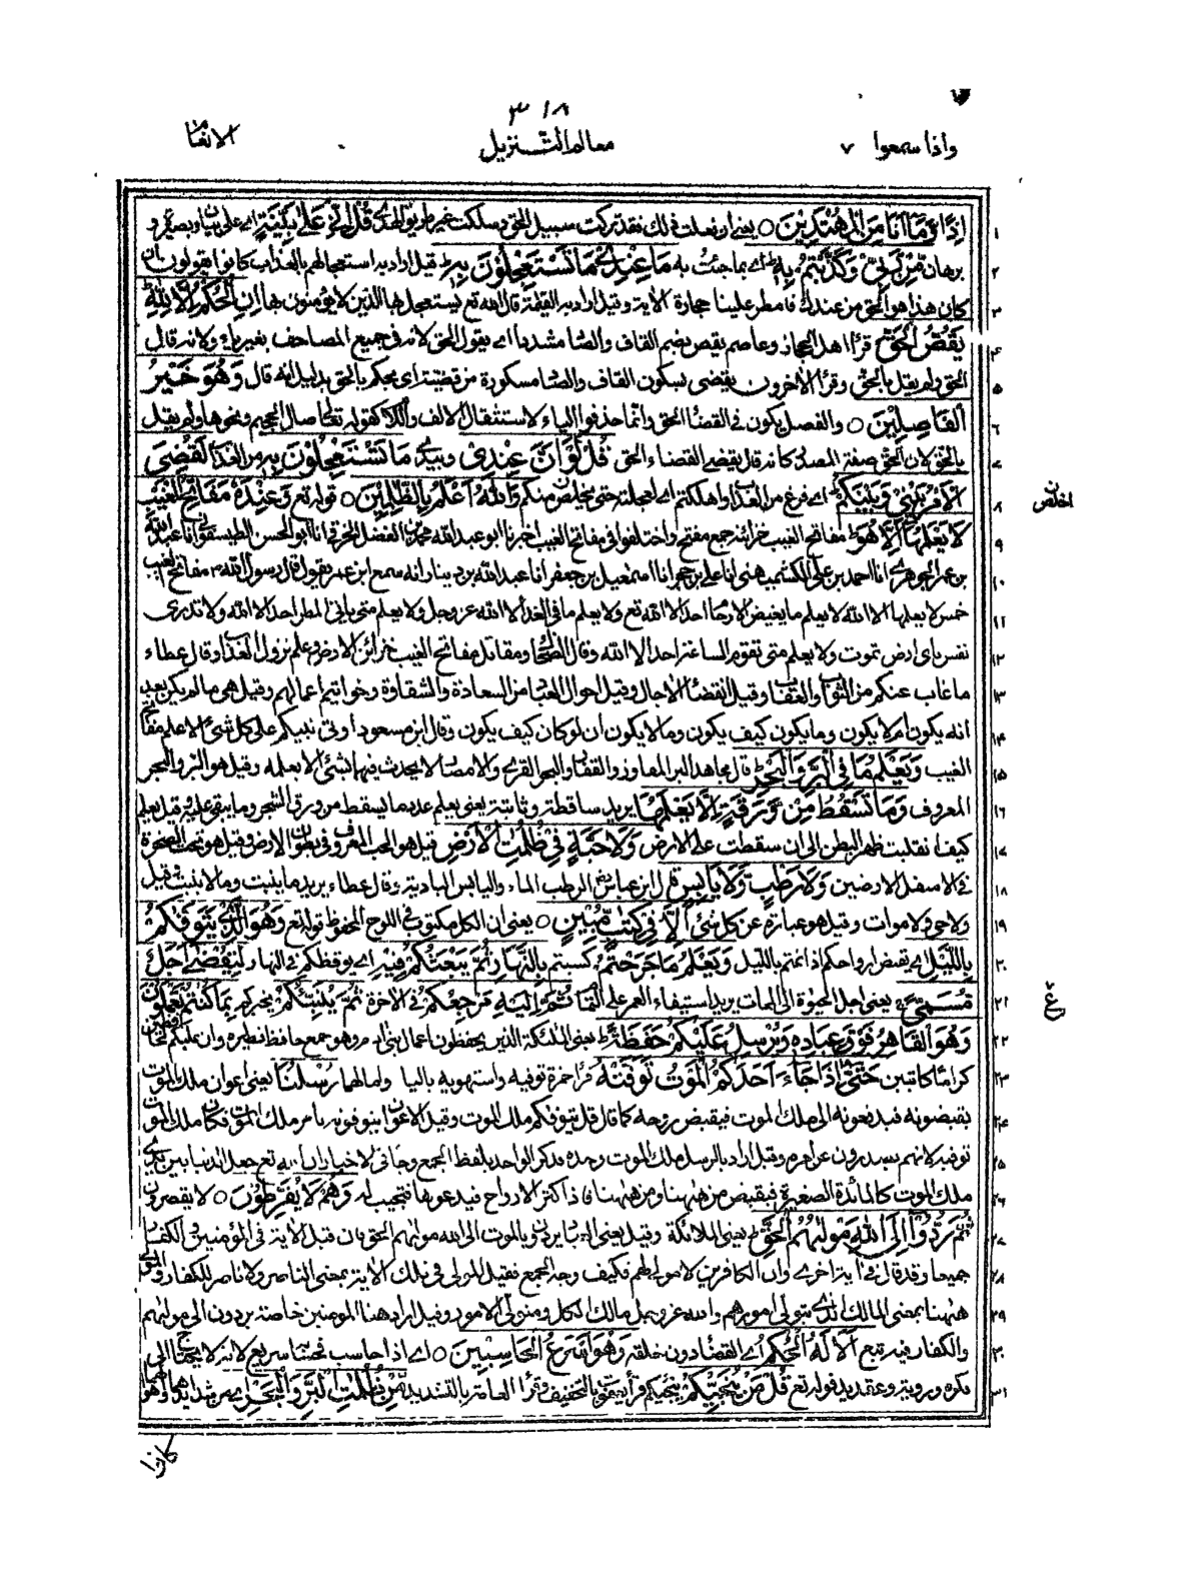 ٣١٨
واذا سمعوا ٧ معالم التنزيل الانعام
اِذًا وَّمَآ اَنَا مِنَ الْمُهْتَدِيْنَ ○ يعني ان فعلت ذلك فقد تركت سبيل الحق وسلكت غير طريق الهدى قُلْ اِنِّيْ عَلٰى بَيِّنَةٍ اے على بيان وبصيرة و
برهان مِّنْ رَّبِّيْ وَكَذَّبْتُمْ بِهٖ اے بما جئت به مَا عِنْدِيْ مَا تَسْتَعْجِلُوْنَ بِهٖ قيل اراد به استعجالهم بالعذاب كانوا يقولون ان
كان هذا هو الحق من عندك فامطر علينا حجارة الاية وقيل اراد به القيمة قال الله تع يستعجل بها الذين لا يؤمنون بها اِنِ الْحُكْمُ اِلَّا لِلّٰهِ
يَقُصُّ الْحَقَّ قرأ اهل الحجاز وعاصم يقص بضم القاف والصاد مشددا اے يقول الحق لانه في جميع المصاحف بغير ياء ولانه قال
الحق ولم يقل بالحق وقرأ الاخرون يقضي بسكون القاف والضاد مكسورة من قضيت اى يحكم بالحق بدليل انه قال وَهُوَ خَيْرُ
الْفَاصِلِيْنَ ○ والفصل يكون في القضاء الحق وانما حذفوا الياء لاستثقال الالف واللام كقوله تعالى صال الجحيم ونحوها ولم يقل
بالحق لان الحق صفة المصدر كانه قال يقضي القضاء الحق قُلْ لَّوْ اَنَّ عِنْدِيْ وبيدى مَا تَسْتَعْجِلُوْنَ بِهٖ من العذاب لَقُضِيَ
الْاَمْرُ بَيْنِيْ وَبَيْنَكُمْ اے فرغ من العذاب واهلكتم اے لعجلته حتى يخلص منكم وَاللّٰهُ اَعْلَمُ بِالظّٰلِمِيْنَ ○ قوله تع وَعِنْدَهٗ مَفَاتِحُ الْغَيْبِ
لَا يَعْلَمُهَآ اِلَّا هُوَ مفاتح الغيب خزائنه جمع مفتح واختلفوا في مفاتح الغيب اخبرنا ابو عبد الله محمد بن الفضل الخرقي انا ابو الحسن الطيسفوني انا عبد الله
بن عمر الجوهرى انا احمد بن علي الكشميهني انا علي بن حجر انا اسمعيل بن جعفر انا عبد الله بن دينار انه سمع ابن عمر يقول قال رسول الله ص مفاتح الغيب
خمس لا يعلمها الا الله لا يعلم ما يغيض الارحام احد الا الله تع ولا يعلم ما في الغد الا الله عز وجل ولا يعلم متى ياتي المطر احد الا الله ولا تدرى
نفس باى ارض تموت ولا يعلم متى تقوم الساعة احد الا الله وقال الضحاك ومقاتل مفاتح الغيب خزائن الارض وعلم نزول العذاب وقال عطاء
ما غاب عنكم من الثواب والعقاب وقيل انقضاء الاجال وقيل احوال العباد من السعادة والشقاوة وخواتيم اعمالهم وقيل هي ما لم يكن بعد
انه يكون ام لا يكون وما يكون كيف يكون وما لا يكون ان لو كان كيف يكون وقال ابن مسعود اوتي نبيكم علم كل شئ الا علم مفاتح
الغيب وَيَعْلَمُ مَا فِي الْبَرِّ وَالْبَحْرِ قال مجاهد البر المفاوز والقفار والبحر القرى والامصار لا يحدث فيهما شئ الا يعلمه وقيل هو البر والبحر
المعروف وَمَا تَسْقُطُ مِنْ وَّرَقَةٍ اِلَّا يَعْلَمُهَا يريد ساقطة وثابتة يعني يعلم عدد ما يسقط من ورق الشجر وما يبقى عليه وقيل يعلم
كيف انقلبت ظهر البطن الى ان سقطت على الارض وَلَا حَبَّةٍ فِيْ ظُلُمٰتِ الْاَرْضِ قيل هو الحب المعروف في بطون الارض وقيل هو تحت الصخرة
في الاسفل الارضين وَلَا رَطْبٍ وَّلَا يَابِسٍ قال ابن عباس رض الرطب الماء واليابس البادية وقال عطاء يريد ما ينبت وما لا ينبت وقيل
ولا حي ولا موات وقيل هو عبارة عن كل شئ اِلَّا فِيْ كِتٰبٍ مُّبِيْنٍ ○ يعني ان الكل مكتوب في اللوح المحفوظ قوله تع وَهُوَ الَّذِيْ يَتَوَفّٰكُمْ
بِاللَّيْلِ اى يقبض ارواحكم اذا نمتم بالليل وَيَعْلَمُ مَا جَرَحْتُمْ كسبتم بِالنَّهَارِ ثُمَّ يَبْعَثُكُمْ فِيْهِ اے يوقظكم في النهار لِيُقْضٰى اَجَلٌ
مُّسَمًّى يعني اجل الحيوة الى الممات يريد استيفاء العمر على التمام ثُمَّ اِلَيْهِ مَرْجِعُكُمْ في الاخرة ثُمَّ يُنَبِّئُكُمْ يخبركم بِمَا كُنْتُمْ تَعْمَلُوْنَ
وَهُوَ الْقَاهِرُ فَوْقَ عِبَادِهٖ وَيُرْسِلُ عَلَيْكُمْ حَفَظَةً يعني الملئكة الذين يحفظون اعمال بني ادم وهو جمع حافظ نظيره وان عليكم لحافظين
كراما كاتبين حَتّٰٓى اِذَا جَآءَ اَحَدَكُمُ الْمَوْتُ تَوَفَّتْهُ قرأ حمزة توفيه واستهويه باليا وامالهما رُسُلُنَا يعني اعوان ملك الموت
يقبضونه فيدفعونه الى ملك الموت فيقبض روحه كما قال قل يتوفكم ملك الموت وقيل الاعوان يتوفونه بامر ملك الموت فكان ملك الموت
توفيه لانهم يصدرون عن امره وقيل اراد بالرسل ملك الموت وحده فذكر الواحد بلفظ الجمع وجاء في الاخبار ان الله تع جعل الدنيا بين يدى
ملك الموت كالمائدة الصغيرة فيقبض من ههنا ومن ههنا فاذا كثر الارواح فيدعوها فتجيب له وَهُمْ لَا يُفَرِّطُوْنَ ○ لا يقصرون
ثُمَّ رُدُّوْٓا اِلَى اللّٰهِ مَوْلٰىهُمُ الْحَقِّ يعني الملائكة وقيل يعني العباد يردون بالموت الى الله مولاهم الحق فان قيل الاية في المؤمنين والكفار
جميعا وقد قال في آية اخرى وان الكافرين لا مولى لهم فكيف وجه الجمع فقيل المولى في تلك الاية بمعنى الناصر ولا ناصر للكفار والمولى
ههنا بمعنى المالك الذى يتولى امورهم والله عز وجل مالك الكل ومتولى الامور وقيل اراد هنا المؤمنين خاصة يردون الى مولاهم
والكفار فيه تبع اَلَا لَهُ الْحُكْمُ اے القضاء دون خلقه وَهُوَ اَسْرَعُ الْحَاسِبِيْنَ ○ اے اذا حاسب فحسابه سريع لانه لا يحتاج الى
فكره وروية وعقد يد قوله تع قُلْ مَنْ يُّنَجِّيْكُمْ قرأ يعقوب بالتخفيف وقرأ العامة بالتشديد مِّنْ ظُلُمٰتِ الْبَرِّ وَالْبَحْرِ اى من شدائدهما واهوالهما
كانوا